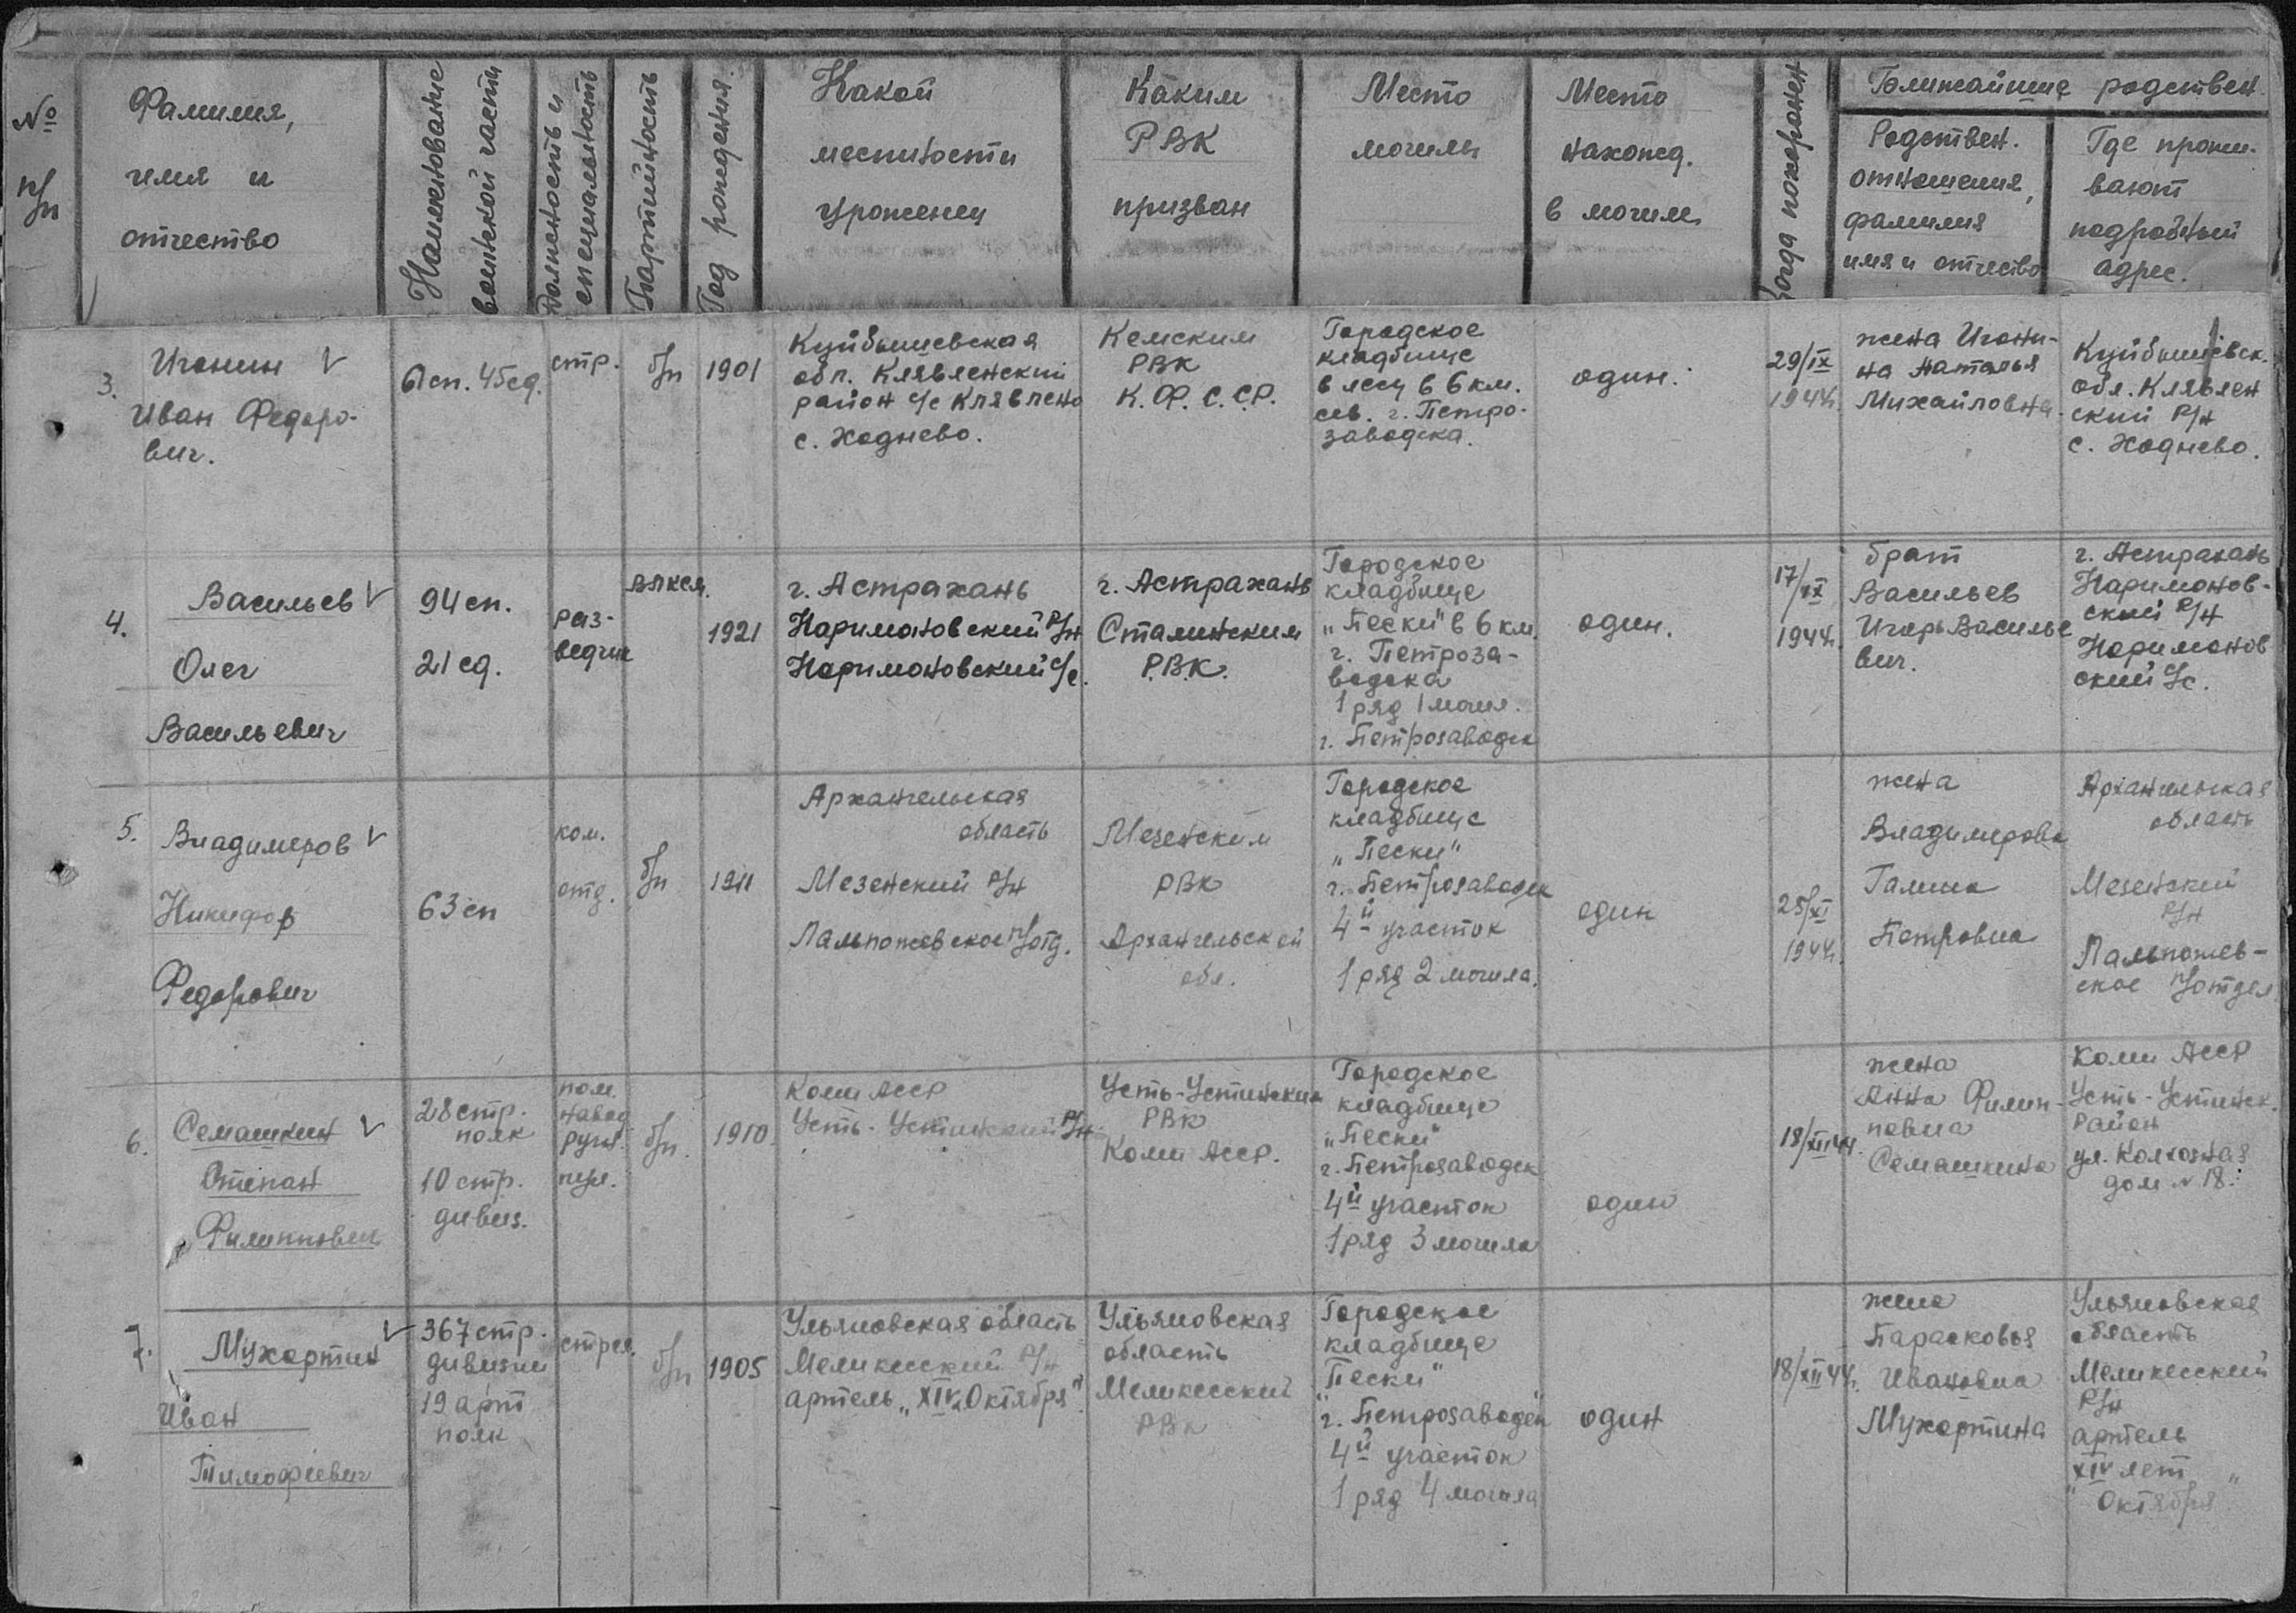 №
п/п
Фамилия,
имя и
отчество
Наименование
воинской части
Должность и
специальность
Партийность
Год рождения
Какой
местности
уроженец
Каким
РВК
призван
Место
могилы
Место
наход.
в могиле
Когда похоронен
Ближайшие родствен.
Родствен.
отношения,
фамилия
имя и отчество
Где прожи-
вают
подробный
адрес.
3.
Игонин
Иван Федоро-
вич.
61 сп. 45 сд.
стр.
б/п
1901
Куйбышевская
обл. Клявленский
район с/с Клявлено
с. Ходнево.
Кемским
РВК
К. Ф. С. С. Р.
Городское
кладбище
в лесу в 6 км.
сев. г. Петро-
заводска.
один.
29/IX
1944г.
жена Игони-
на Наталья
Михайловна.
Куйбышевск.
обл. Клявлен
ский р/н
с. Ходнево.
4.
Васильев
Олег
Васильевич
94 сп.
21 сд.
раз-
ведчик
ВЛКСМ.
1921
г. Астрахань
Наримановский р/н
Наримановский с/с.
г. Астрахань
Сталинским
Р.В.К.
Городское
кладбище
„Пески" в 6 км.
г. Петроза-
водска
1 ряд 1 могил.
г. Петрозаводск
один.
17/
1944г.
брат
Васильев
Игорь Василье
вич.
г. Астрахань
Наримонов-
ский р/н
Наримонов
ский с/с.
5.
Владимеров
Никифор
Федорович
63 сп
ком.
отд.
б/п
1911
Архангельская
область
Мезенский р/н
Лампожевское п/отд.
Мезенским
РВК
Архангельской
обл.
Городское
кладбище
„Пески"
г. Петрозаводск
4й участок
1 ряд 2 могила.
один
25/XI
1944г.
жена
Владимерова
Галина
Петровна
Архангельская
область
Мезенский
р/н
Лампожев-
ское п/отдел
6.
Семашкин
Степан
Филиппович
28 стр.
полк
10 стр.
дивиз.
пом.
навод
руч.
пул.
б/п.
1910.
Коми АССР
Усть-Устинский р/н
Усть-Устинским
РВК
Коми АССР.
Городское
кладбище
„Пески"
г. Петрозаводск
4й участок
1 ряд 3 могила
один
18/XII 44.
жена
Анна Филип-
повна
Семашкина
Коми АССР
Усть-Устинск.
район
ул. Колхозная
дом № 18.
7.
Мухортин
Иван
Тимофеевич
367 стр.
дивизии
19 арт
полк
стрел.
б/п
1905
Ульяновская область
Мелекесский р/н
артель „XIV Октября".
Ульяновская
область
Мелекесский
РВК
Городское
кладбище
„Пески"
г. Петрозаводск
4й участок
1 ряд 4 могила
один
18/XII 44г.
жена
Парасковья
Ивановна
Мухортина
Ульяновская
область
Мелекесский
р/н
артель
XIV лет
„Октября"